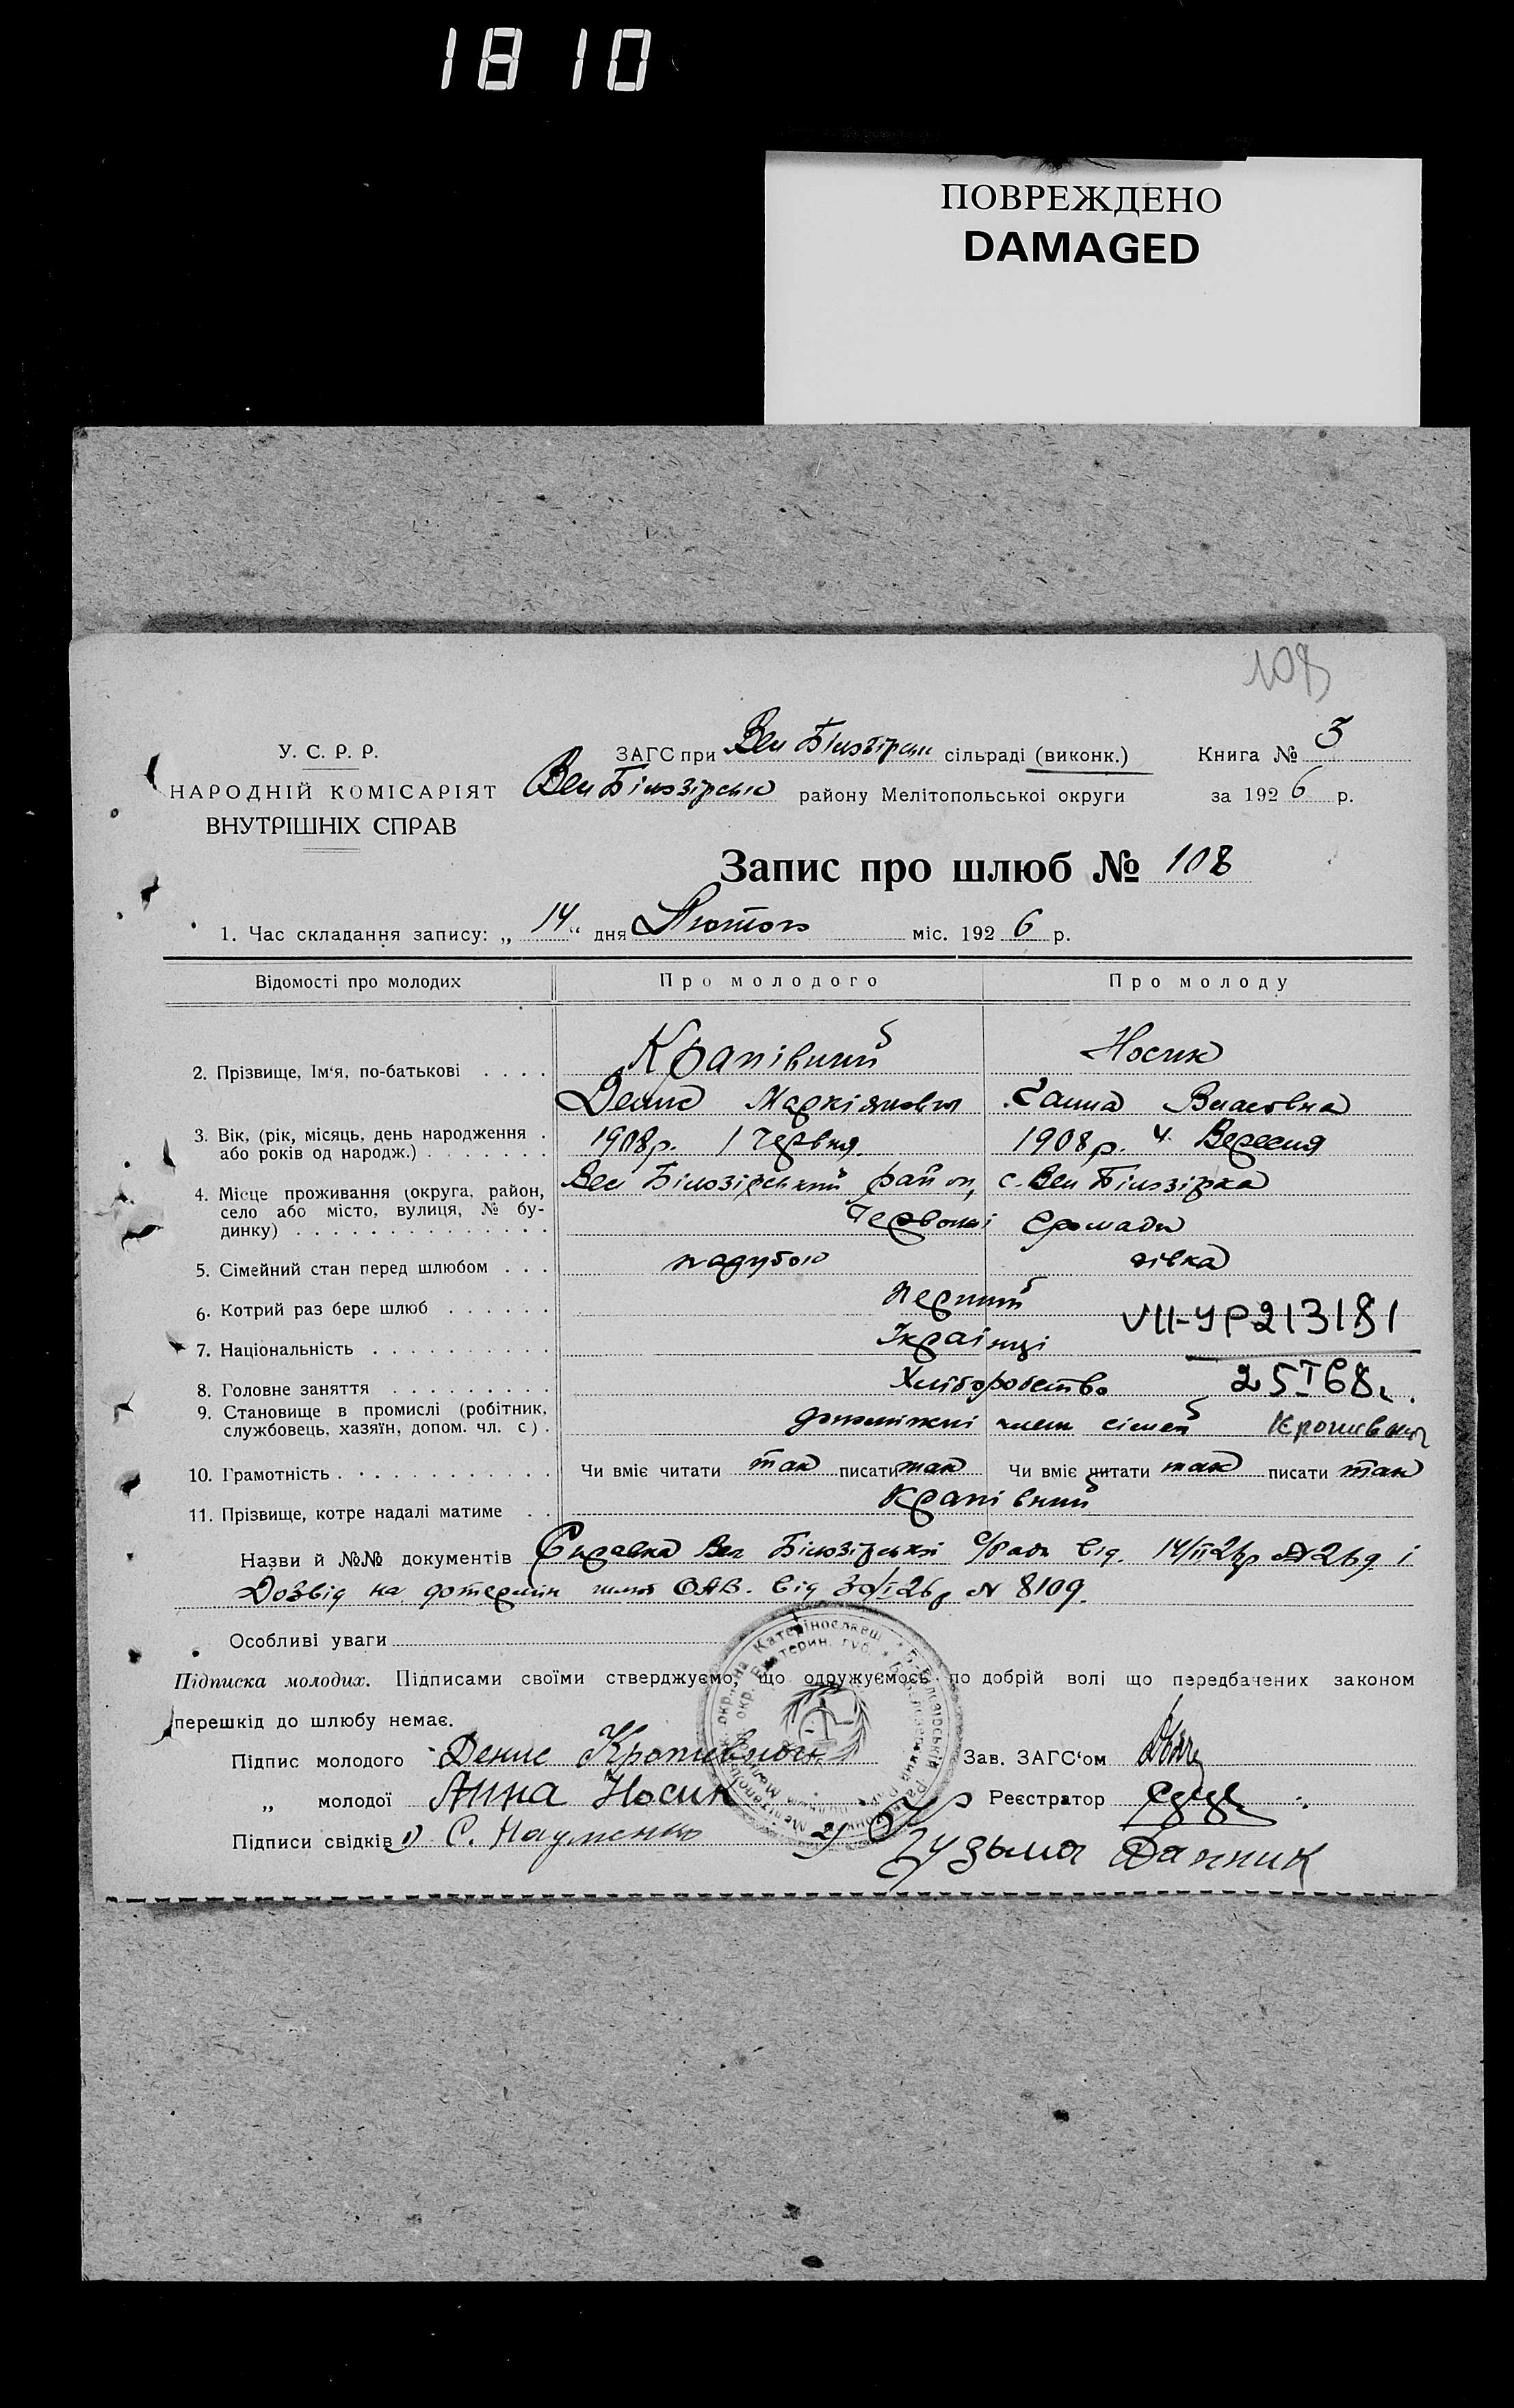 1810
ПОВРЕЖДЕНО
DAMAGED
108
У. С. Р. Р.
НАРОДНІЙ КОМІСАРІЯТ
ВНУТРІШНІХ СПРАВ
ЗАГС при Вел Білозірськ сільраді (виконк.) Книга № 3
Вел Білозірськ району Мелітопольської округи за 1926 р.
Запис про шлюб № 108
1. Час складання запису: „14“ дня Лютого міс. 1926 р.
Відомості про молодих Про молодого Про молоду
2. Прізвище, Ім‘я, по-батькові . . . . Крапівний Носик
Денис Маркіянович Ганна Власовна
3. Вік, (рік, місяць, день народження . 1908р. 1 Червня. 1908р. 4 Вересня
або років од народж.) . . . . . . .
4. Місце проживання (округа, район, Вел Білозірський район, с. Вел Білозірка
село або місто, вулиця, № бу- Червоної Громади
динку) . . . . . . . . . . . . . .
5. Сімейний стан перед шлюбом . . . парубок дівка
6. Котрий раз бере шлюб . . . . . . Перший
VII-УР213181
7. Національність . . . . . . . . . . Українці
8. Головне заняття . . . . . . . . . Хліборобство 25 I 68г.
9. Становище в промислі (робітник, допоміжні член сімей
службовець, хазяїн, допом. чл. с) .
10. Грамотність . . . . . . . . . . . . Чи вміє читати так писати так Чи вміє читати так писати так
11. Прізвище, котре надалі матиме . . Крапівний
Назви й №№ документів Справка Вел Білозірської с/Ради від 14/II 26р № 26д і
Дозвід на від 30/I 26р № 8109.
Особливі уваги
Підписка молодих. Підписами своїми стверджуємо, що одружуємось по добрій волі що передбачених законом
перешкід до шлюбу немає.
Підпис молодого Денис Кропивной Зав. ЗАГС‘ом
„ молодої Анна Носик Реєстратор
Підписи свідків 1) С. Науменко 2) Кузьма Данник